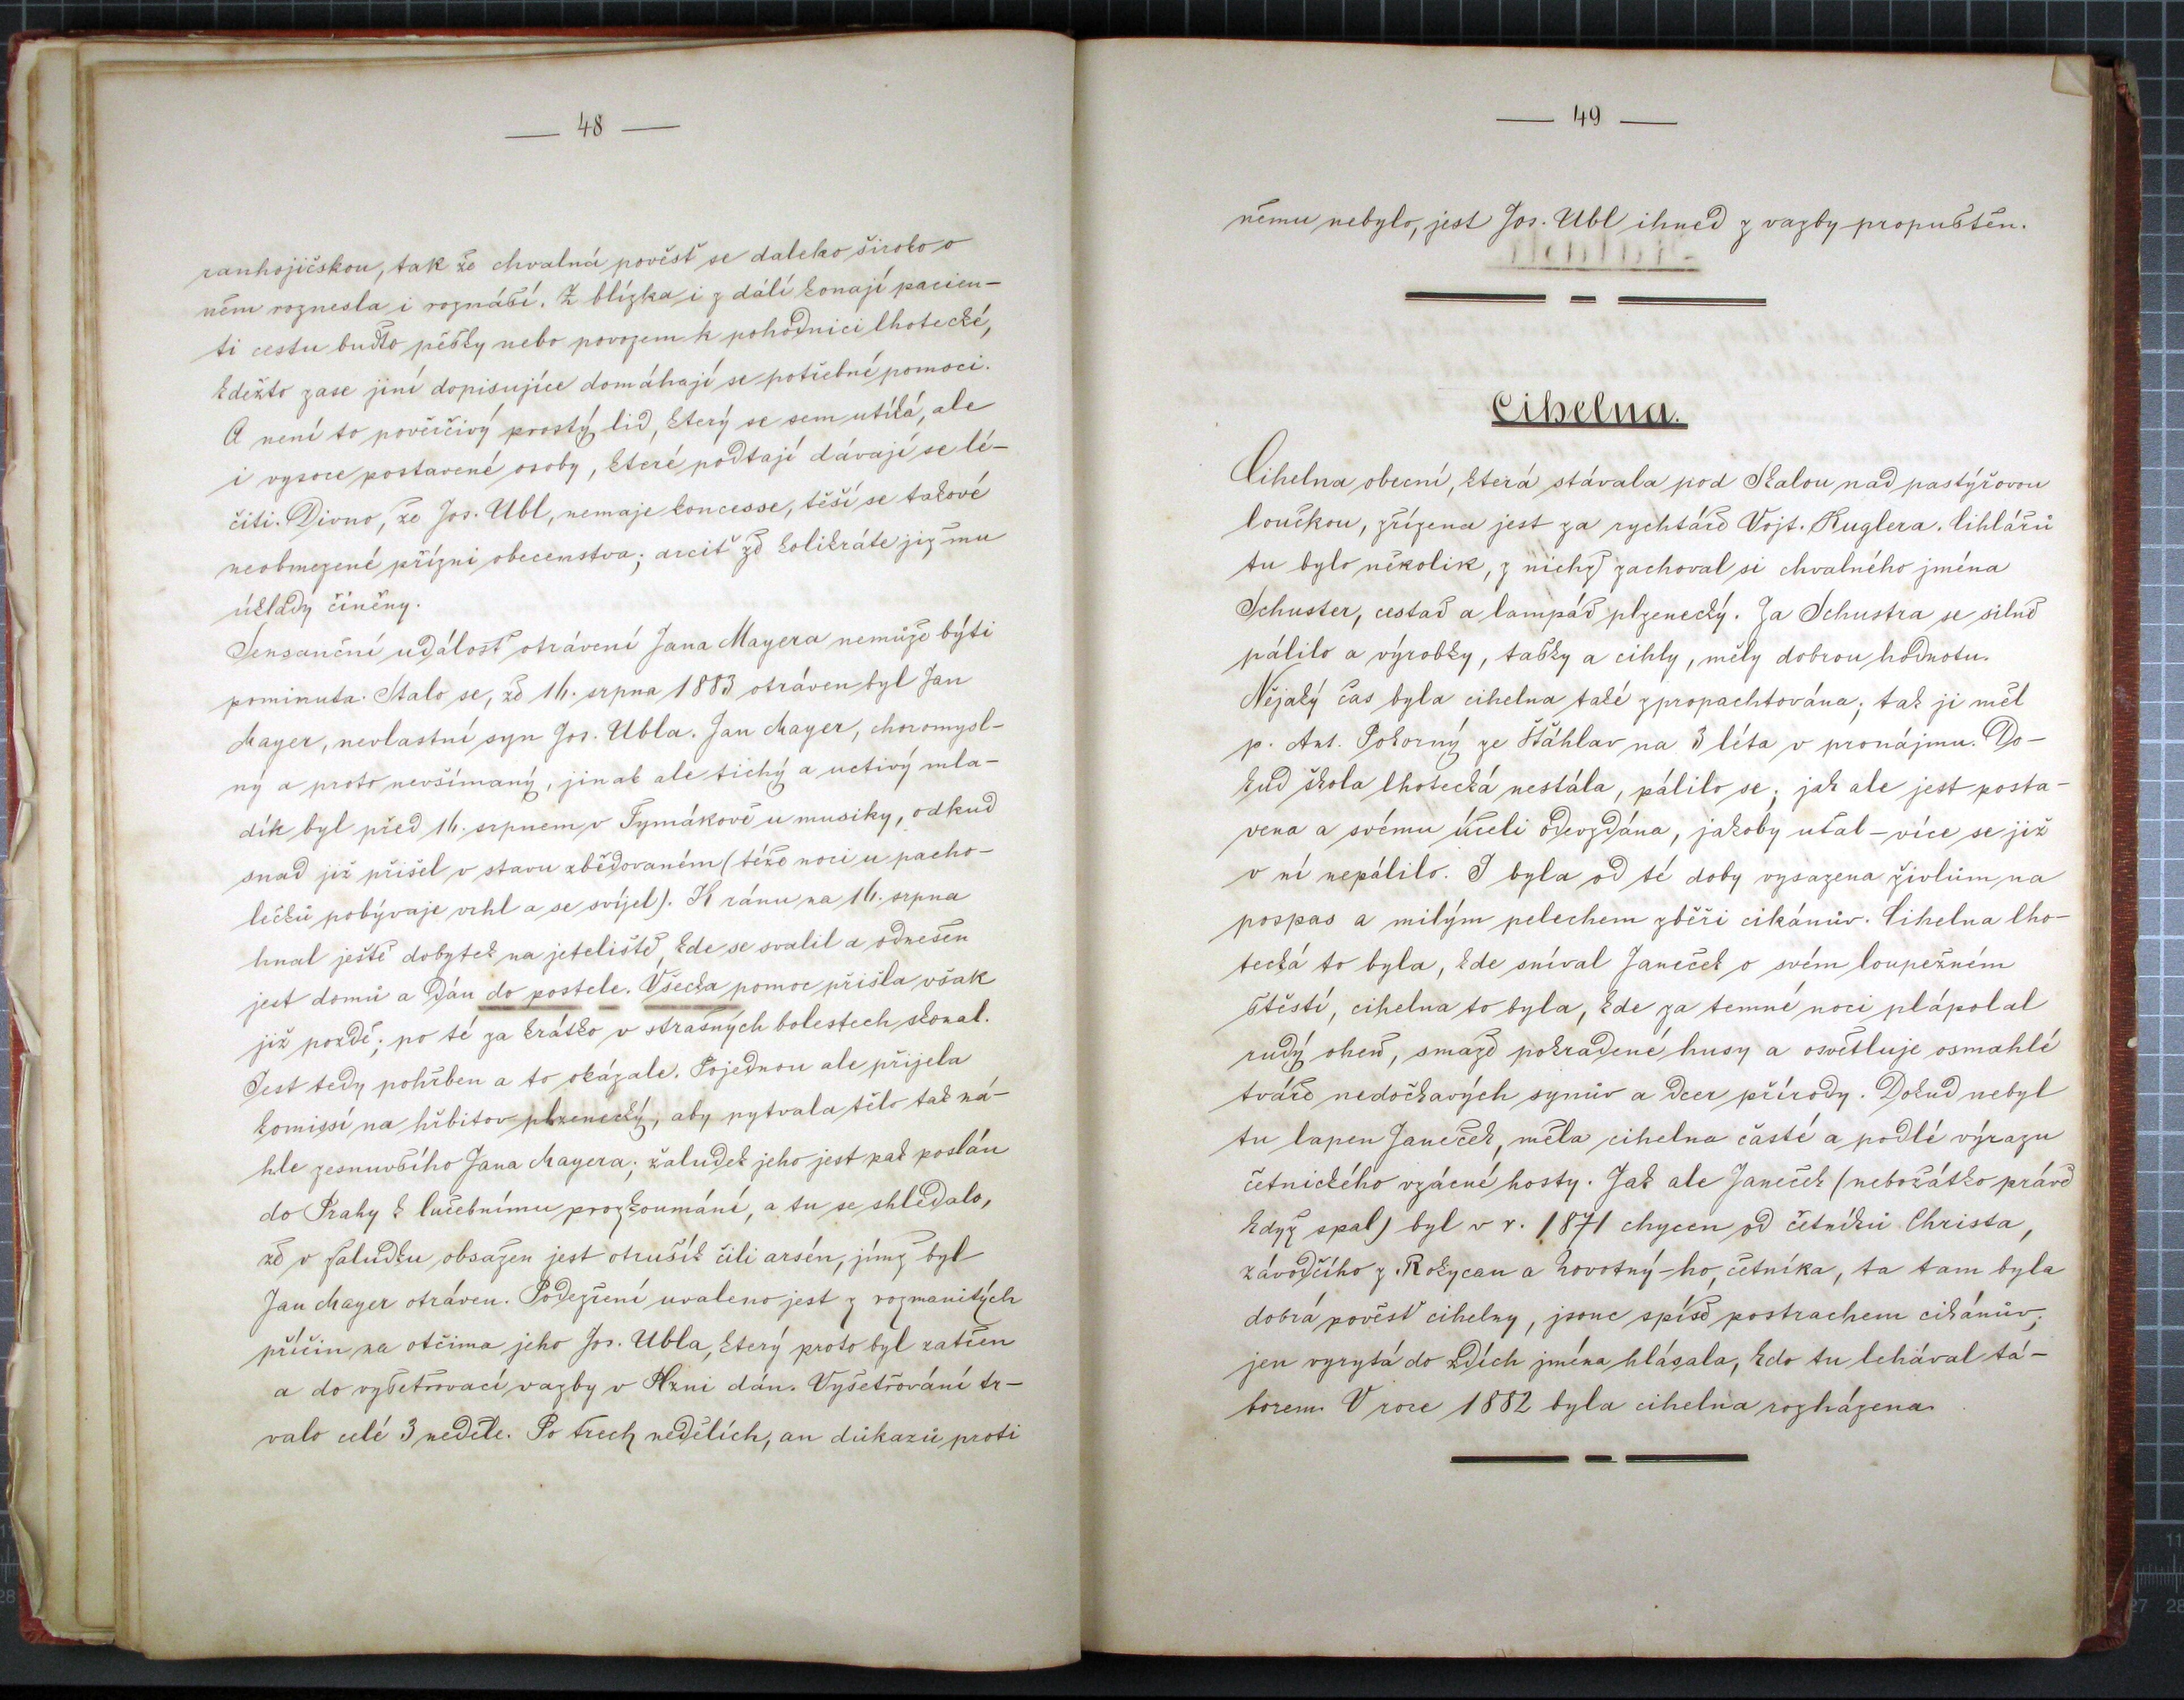 — 48 —
ranhojičskou, tak že chvalná pověsť se daleko široko o
něm roznesla i roznáší. Z blízka i z dálí konají pacien-
ti cestu buďto pěšky nebo povozem k pohodnici lhotecké,
kdežto zase jiní dopisujíce domáhají se potřebné pomoci.
A není to pověrčivý prostý lid, který se sem utíká, ale
i vysoce postavené osoby, které podtají dávají se lé-
čiti. Divno, že Jos. Ubl, nemaje koncesse, těší se takové
neobmezené přízni obecenstva; arciť že kolikráte jiz mu
úklady činěny.
Sensanční událosť otrávení Jana Mayera nemůže býti
pominuta. Stalo se, že 16. srpna 1883 otráven byl Jan
Mayer, nevlastní syn Jos. Ubla. Jan Mayer, choromysl-
ný a proto nevšímaný, jinak ale tichý a uctivý mla-
dík byl před 16. srpnem v Tymákově u musiky, odkud
snad již přišel v stavu zbědovaném (téže noci u pacho-
lečků pobývaje vrhl a se svíjel). K ránu na 16. srpna
hnal ještě dobytek na jeteliště, kde se svalil a odnešen
jest domů a dán do postele. Všecka pomoc přišla však
již pozdě; po té za krátko v strašných bolestech skonal.
Jest tedy pohřben a to okázale. Pojednou ale přijela
komissí na hřbitov plzenecký, aby pytvala tělo tak ná-
hle zesnuvšího Jana Mayera; žaludek jeho jest pak poslán
do Prahy k lučebnímu prozkoumání, a tu se shledalo,
že v žaludku obsažen jest otrušík čili arsén, jímž byl
Jan Mayer otráven. Podezření uvaleno jest z rozmanitých
příčin na otčima jeho Jos. Ubla, který proto byl zatčen
a do vyšetřovací vazby v Plzni dán. Vyšetřování tr-
valo celé 3 neděle. Po třech nedělích, an důkazů proti
— 49 —
němu nebylo, jest Jos. Ubl ihned z vazby propuštěn.
Cihelna.
Cihelna obecní, která stávala pod Skalou nad pastýřovou
loučkou, zřízena jest za rychtáře Vojt. Kuglera. Cihlářů
tu bylo několik, z nichž zachoval si chvalného jména
Schuster, cestař a lampář plzenecký. Za Schustra se silně
pálilo a výrobky, tašky a cihly, měly dobrou hodnotu.
Nějaký čas byla cihelna také zpropachtována; tak ji měl
p. Ant. Pokorný ze Šťáhlav na 3 léta v pronájmu. Do-
kud škola lhotecká nestála, pálilo se; jak ale jest posta-
vena a svému účeli odevzdána, jakoby uťal – více se již
v ní nepálilo. I byla od té doby vysazena živlům na
pospas a milým pelechem zběři cikánův. Cihelna lho-
tecká to byla, kde sníval Janeček o svém loupežném
štěstí, cihelna to byla, kde za temné noci plápolal
rudý oheň, smaže pokradené husy a osvětluje osmahlé
tváře nedočkavých synův a dcer přírody. Dokud nebyl
tu lapen Janeček, měla cihelna časté a podlé výrazu
četnického vzácné hosty. Jak ale Janeček (nebožátko právě
když spal) byl v r. 1871 chycen od četníků Christa,
závodčího z Rokycan a Novotný-ho, četníka, ta tam byla
dobrá pověsť cihelny, jsouc spíše postrachem cikánův;
jen vyrytá do zdích jména hlásala, kdo tu lehával tá-
borem. V roce 1882 byla cihelna rozházena.